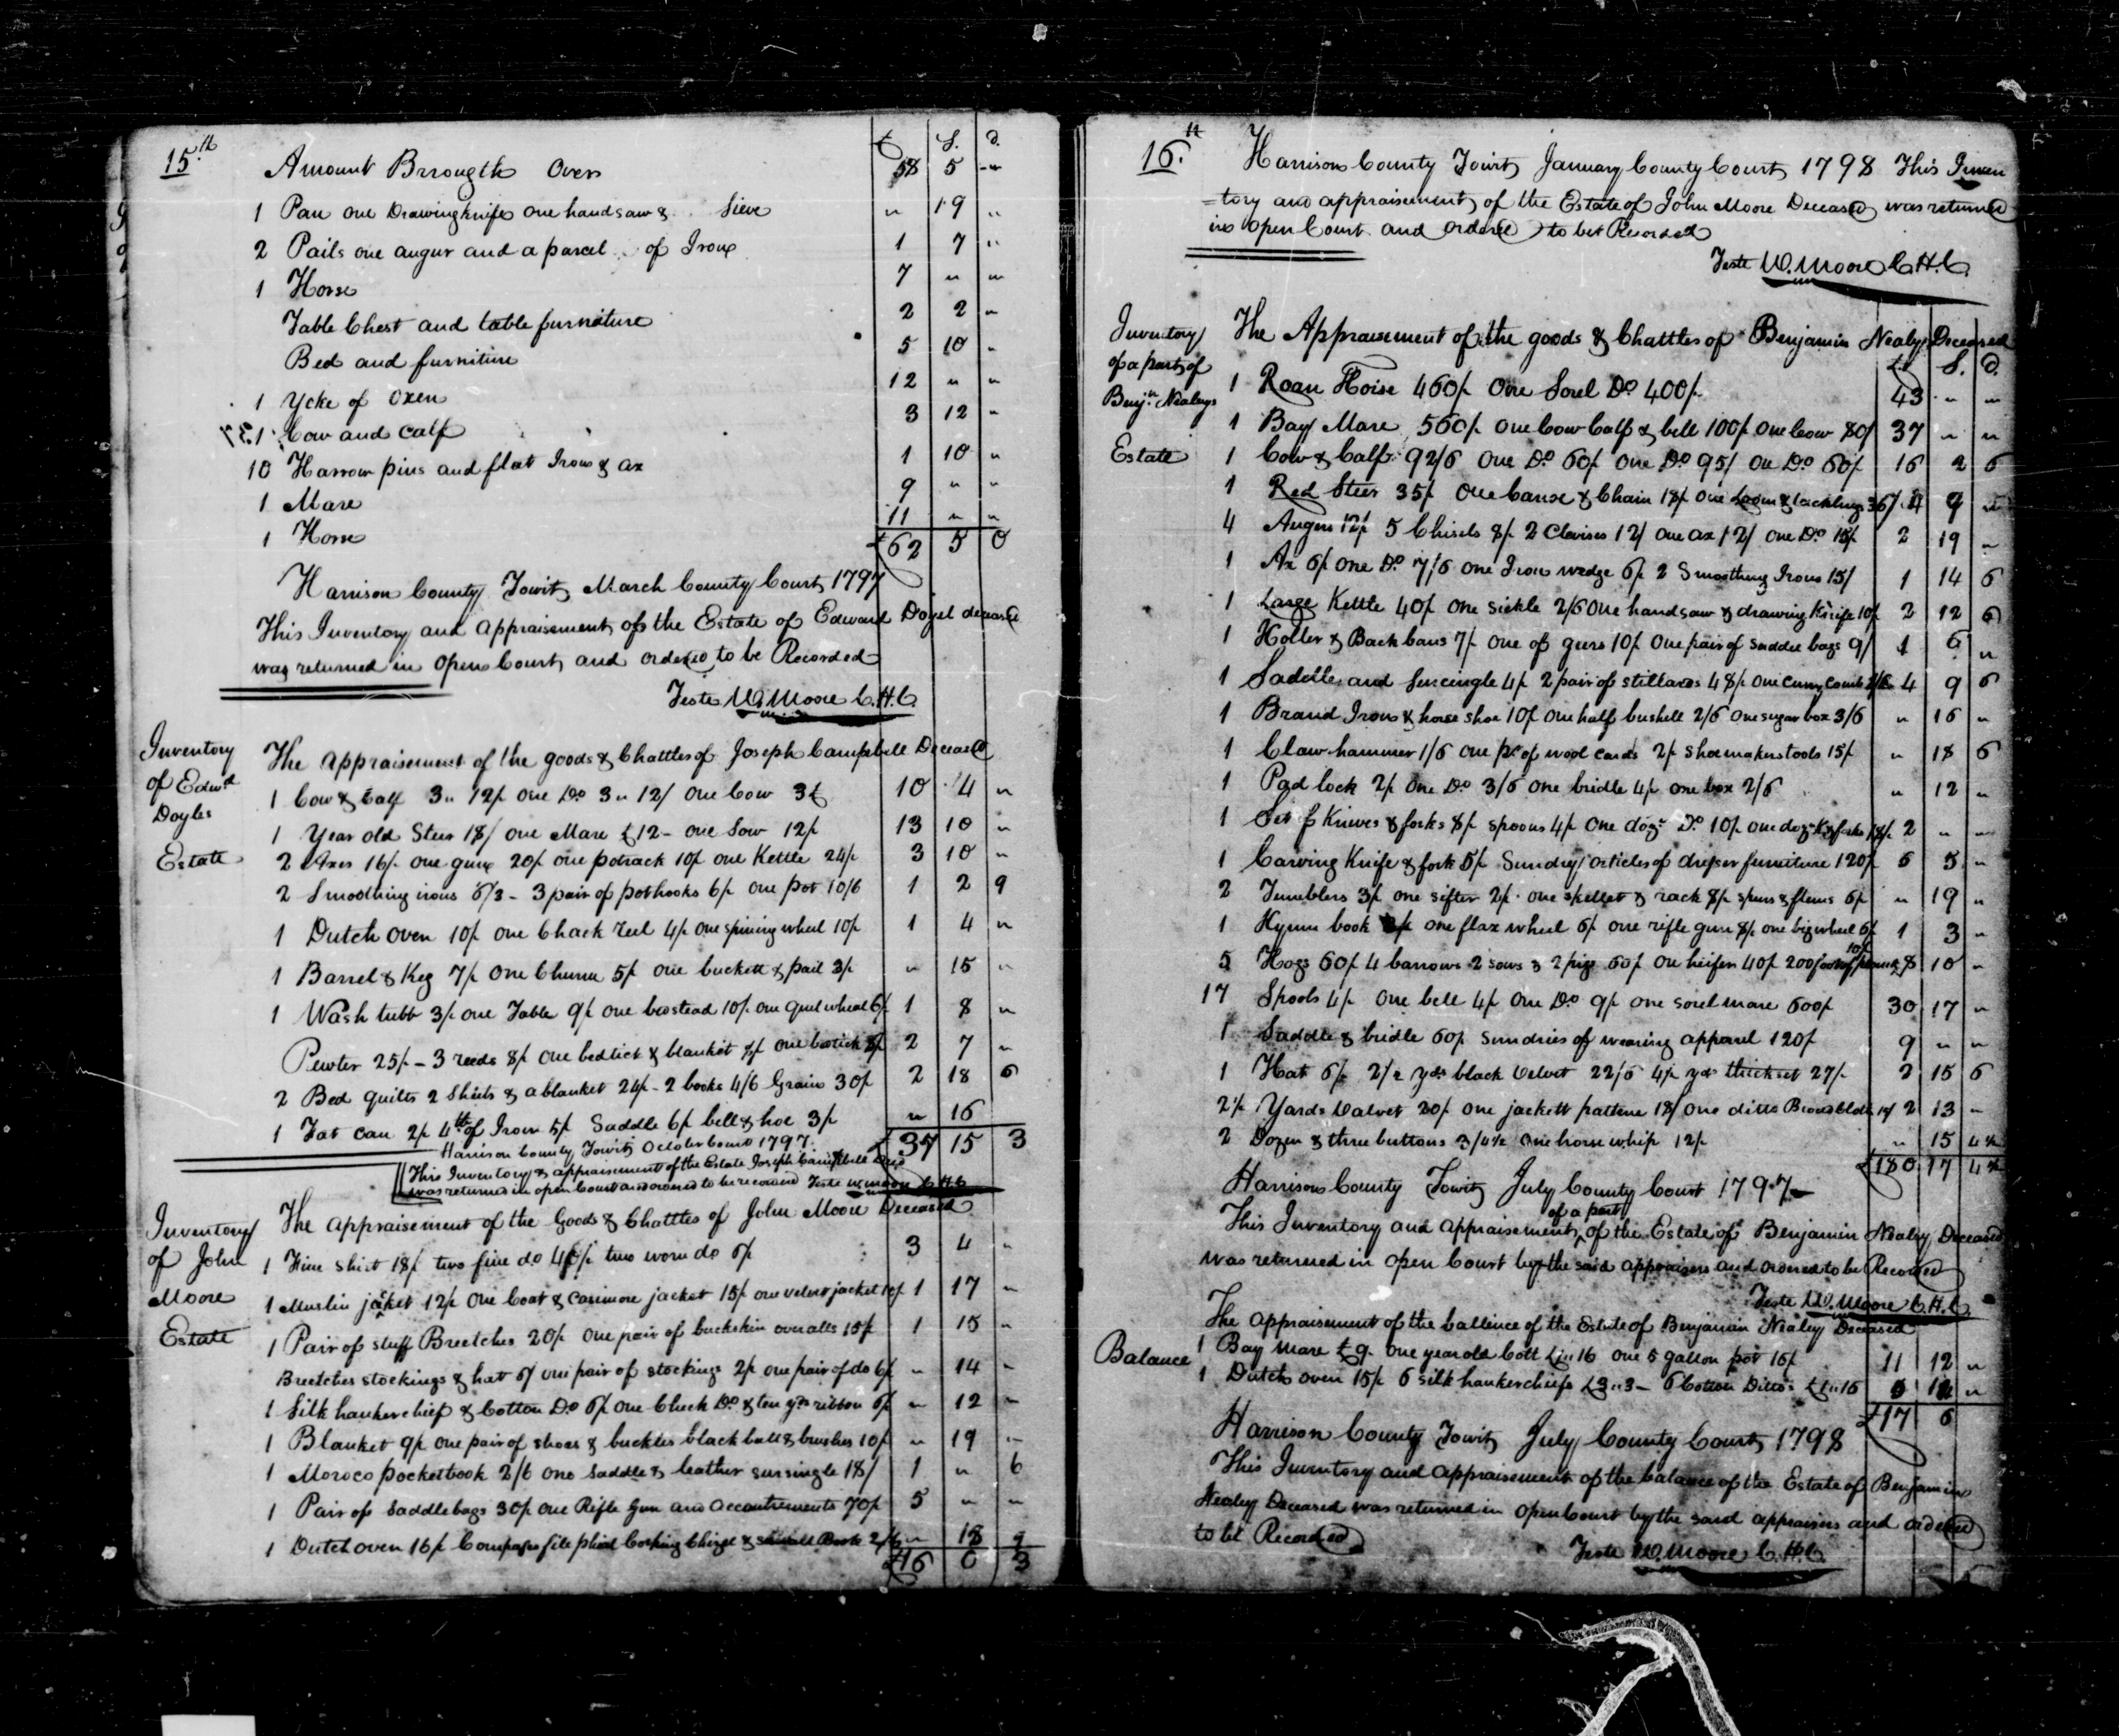 15.th
£ S. d.
Amount Brrougth Over 58 5 "
1 Pan one Drawingknife one handsaw & Sieve " 19 "
2 Pails one augur and a parcel of Iron 1 7 "
1 Horse 7 " "
Table Chest and table furnature 2 2 "
Bed and furniture 5 10 "
1 Ycke of Oxen 12 " "
1 Cow and Calf 3 12 "
10 Harrow pins and flat Iron & ax 1 10 "
1 Mare 9 " "
1 Horse 11 " "
£62 5 0
Harrison County Towit March County Court 1797
This Inventory and appraisement of the Estate of Edward Doyel deceased
was returned in open Court and ordered to be Recorded
Teste W. Moore C.H.C.
Inventory of Edwd Doyles Estate
The appraisement of the goods & Chattles of Joseph Campbell Deceased
1 Cow & Calf 3" 12/ one Do 3" 12/ one Cow 3£ 10 4 "
1 Year old Steer 18/ one Mare £12 - one Sow 12/ 13 10 "
2 Axes 16/ one gun 20/ one potrack 10/ one Kettle 24/ 3 10 "
2 Smoothing irons 6/3 - 3 pair of pothooks 6/ one pot 10/6 1 2 9
1 Dutch Oven 10/ one Chack reel 4/ one spining wheel 10/ 1 4 "
1 Barrel & Keg 7/ one Churn 5/ one buckett & pail 3/ " 15 "
1 Wash tubb 3/ one Table 9/ one bedstead 10/ one quil wheel 6/ 1 8 "
Pewter 25/ - 3 reeds 8/ one bedtick & blanket one 2 7 "
2 Bed quilts 2 Sheets & a blanket 24/ - 2 books 4/6 Grain 30/ 2 18 6
1 Fat can 2/ 4th of Iron 5/ Saddle 6/ bell & hoe 3/ " 16
£37 15 3
Harrison County Towit October Court 1797.
This Inventory & appraisement of the Estate Joseph Campbell Decd
was returned in open Court and ordered to be recorded Teste W. Moore C.H.C
Inventory of John Moore Estate
The appraisement of the Goods & Chattles of John Moore Deceased
1 Fine shirt 18/ two fine do 40/ two worn do 6/ 3 4 "
1 Muslin jacket 12/ one Coat & Casimore jacket 15/ one velvet jacket 10/ 1 17 "
1 Pair of stuff Breetches 20/ one pair of buckskin overalls 15/ 1 15 "
Breetches stockings & hat 6/ one pair of stockings 2/ one pair of do 6/ " 14 "
1 Silk hankerchief & Cotton Do 6/ one Check Do & ten yds ribbon 6/ " 12 "
1 Blanket 9/ one pair of shoes & buckles black ball & brushes 10/ " 19 "
1 Moroco pocketbook 2/6 one Saddle & leather sursingle 18/ 1 " 6
1 Pair of saddlebags 30/ one Rifle gun and accoutrements 70/ 5 " "
1 Dutch oven 16/ Compass file phial Corking Chizel & small Book 2/ " 18 9
£16 0 3
16.th
Harrison County Towit January County Court 1798 This Inven
=tory and appraisement of the Estate of John Moore Deceased was returned
in open Court and ordered to be Recorded
Teste W. Moore C.H.C.
Inventory of a part of Benjn Nealeys Estate
The Appraisement of the goods & Chattles of Benjamin Nealey Deceased
£ S. d.
1 Roan Horse 460/ One Sorel Do 400/ 43 " "
1 Bay Mare 560/ one Cow Calf & bell 100/ one Cow 80/ 37 " "
1 Cow & Calf 92/6 one Do 60/ one Do 95/ one Do 60/ 16 2 6
1 Red Steer 35/ one & Chain 18/ one Loom & tackling 36/ 4 9 "
4 Augers 12/ 5 Chisels 8/ 2 Clevises 12/ one ax 12/ one Do 15/ 2 19 "
1 Ax 6/ one Do 7/6 one Iron wedge 6/ 2 Smoothing Irons 15/ 1 14 6
1 Large Kettle 40/ one sickle 2/6 one handsaw & drawing Knife 10/ 2 12 6
1 Holter & Back bans 7/ one of geers 10/ one pair of saddle bags 9/ 1 6 "
1 Saddle and surcingle 4/ 2 pair of stillards 48/ one curry comb 2/6 4 9 6
1 Brand Iron & horse shoe 10/ one half bushell 2/6 one sugar box 3/6 " 16 "
1 Claw hammer 1/6 one pr of wool cards 2/ shoemakers tools 15/ " 18 6
1 Pad lock 2/ one Do 3/6 one bridle 4/ one box 2/6 " 12 "
1 Set of Knives & forks 8/ spoons 4/ one dozn Do 10/ one dozn K & forks 18/ 2 " "
1 Carving Knife & fork 5/ Sundry articles of dresser furniture 120/ 6 5 "
2 Tumblers 3/ one sifter 2/ one skellet & rack 8/ spurs & flems 6/ " 19 "
1 Hymn book one flax wheel 6/ one rifle gun 8/ one big wheel 6/ 1 3 "
5 Hogs 60/ 4 barrows 2 sows & 2 pigs 60/ one heifer 40/ 200 foot of 10/ 8 10 "
17 Spools 4/ one bell 4/ one Do 9/ one sorel mare 600/ 30 17 "
1 Saddle & bridle 60/ sundries of wearing apparel 120/ 9 " "
1 Hat 6/ 2½ yds black velvet 22/6 4½ yds thickset 27/ 2 15 6
2½ Yards Valvet 20/ one jackett pattern 18/ one ditto Broadcloth 15/ 2 13 "
2 Dozen & three buttons 3/4½ one horse whip 12/ " 15 4½
£180 17 4½
Harrison County Towit July County Court 1797
This Inventory and appraisement of a part of the Estate of Benjamin Nealey Deceased
was returned in open Court by the said appraisers and ordered to be Recorded
Teste W. Moore C.H.C.
The appraisement of the ballence of the Estate of Benjamin Nealey Deceased
Balance
1 Bay mare £9. one year old Colt £1"16 one 5 gallon pot 16/ 11 12 "
1 Dutch oven 15/ 6 silk hankerchiefs £3"3 - 6 Cotton Dittos £1"16 5 14 "
£17 6
Harrison County Towit July County Court 1798
This Inventory and appraisement of the balance of the Estate of Benjamin
Nealey Deceased was returned in open Court by the said appraisers and ordered
to be Recorded
Teste W. Moore C.H.C.